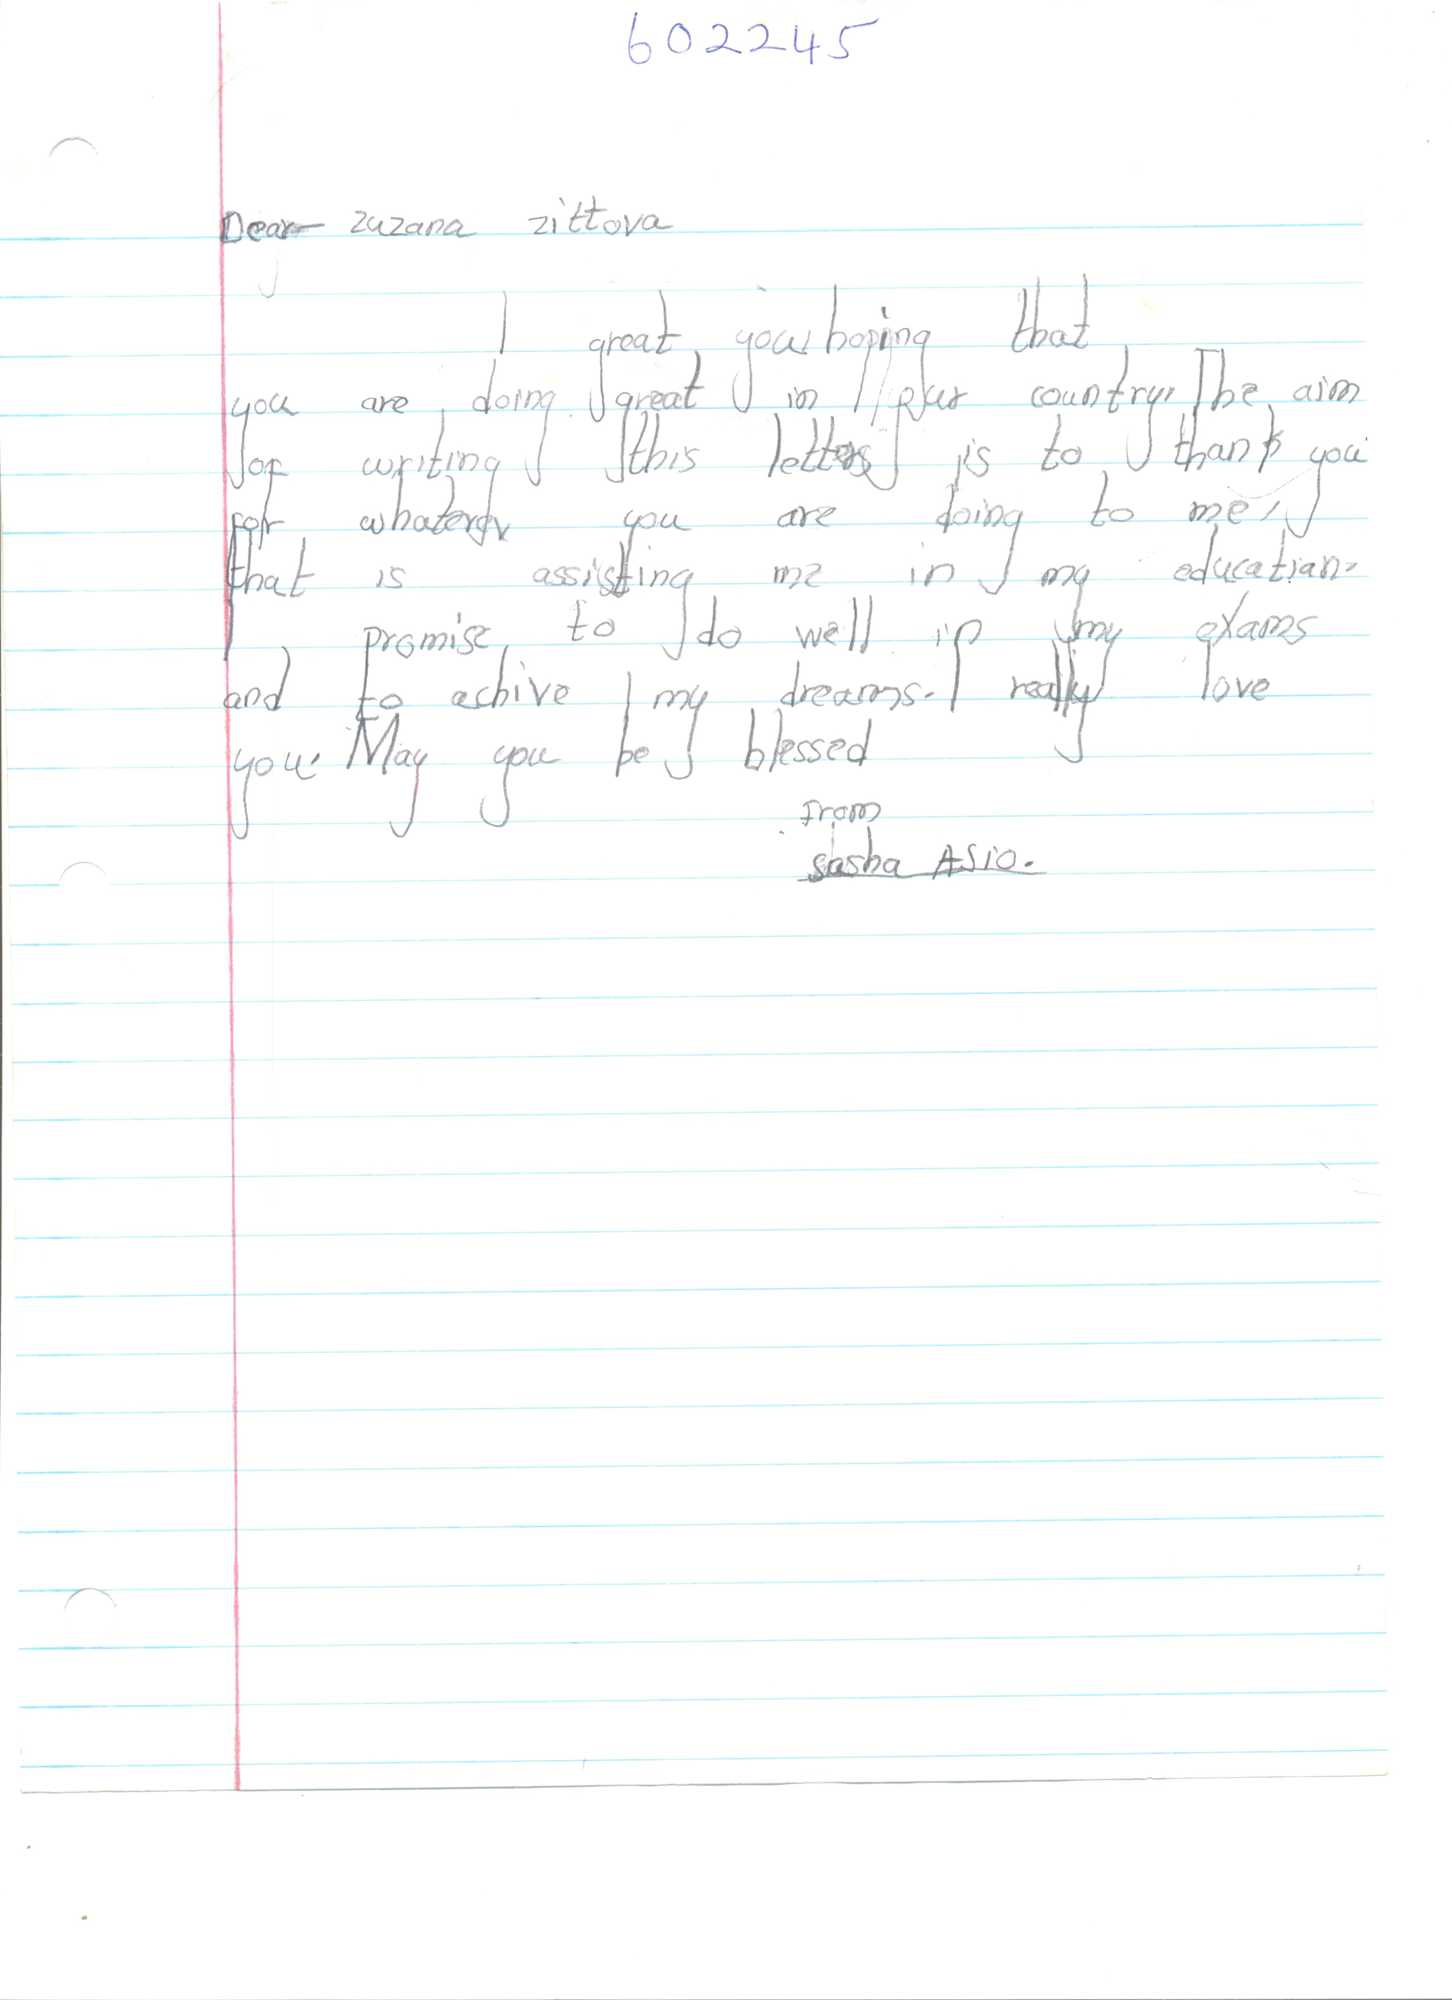 602245
Dear zuzana zittova
I great you hoping that
you are doing great in your country. The aim
of writing this letters is to thank you
for whaterev you are doing to me,
that is assisting me in my education.
I promise to do well in my exams
and to achive my dreams. I really love
you. May you be blessed
From
sasha ASIO.